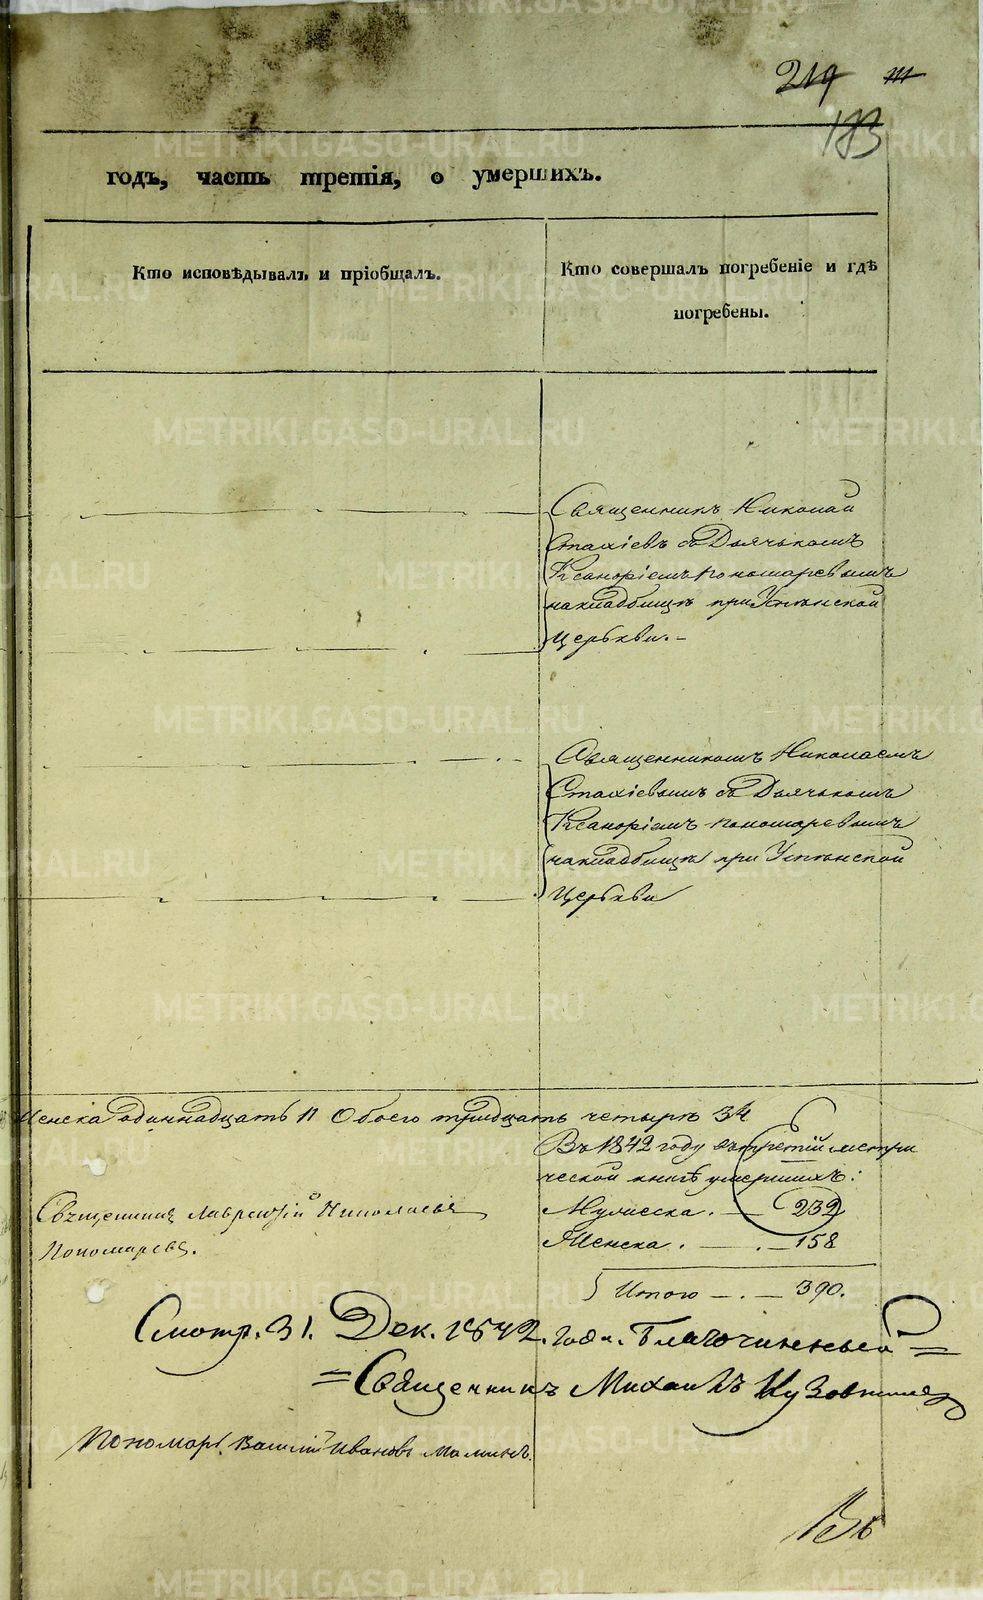 219
183
годъ, часть третія, о умершихъ.
Кто исповѣдывалъ и пріобщалъ.
Кто совершалъ погребеніе и гдѣ
погребены.
Священникъ Николай
Стахіевъ съ Дьячькомъ
Ксанѳріемъ Пономаревымъ
на кладбищѣ при Успѣнской
Церькви.-
Священникомъ Николаемъ
Стахіевымъ съ Дьячькомъ
Ксанѳріемъ Пономаревымъ
на кладбищѣ при Успѣнской
Церькви
Женска одиннадцать 11 Обоего тридцать четырѣ 34
Въ 1842 году въ третій метри
ческой книгѣ умершихъ:
Священникъ Лаврентій Николаевъ
Мужеска. — 232
Пономаревъ.
Женска. — . — 158
Итого — . — 390.
Смотр. 31. Дек. 1842. года. Благочинный =
= Священникъ Михаилъ
Пономарь Василій Ивановъ Маминъ.
Въ
METRIKI.GASO-URAL.RU